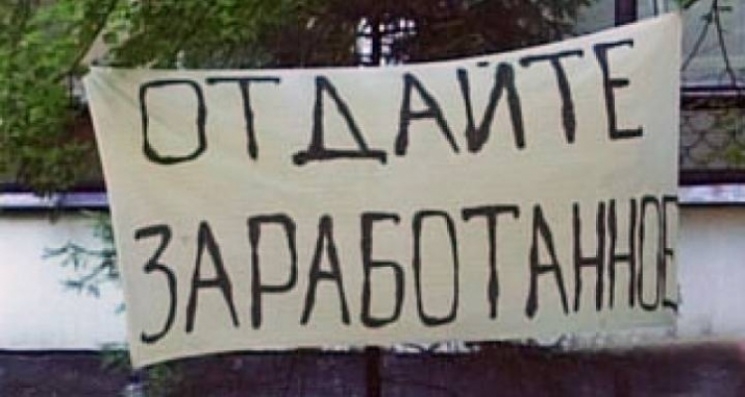 ОТДАЙТЕ
ЗАРАБОТАННОЕ